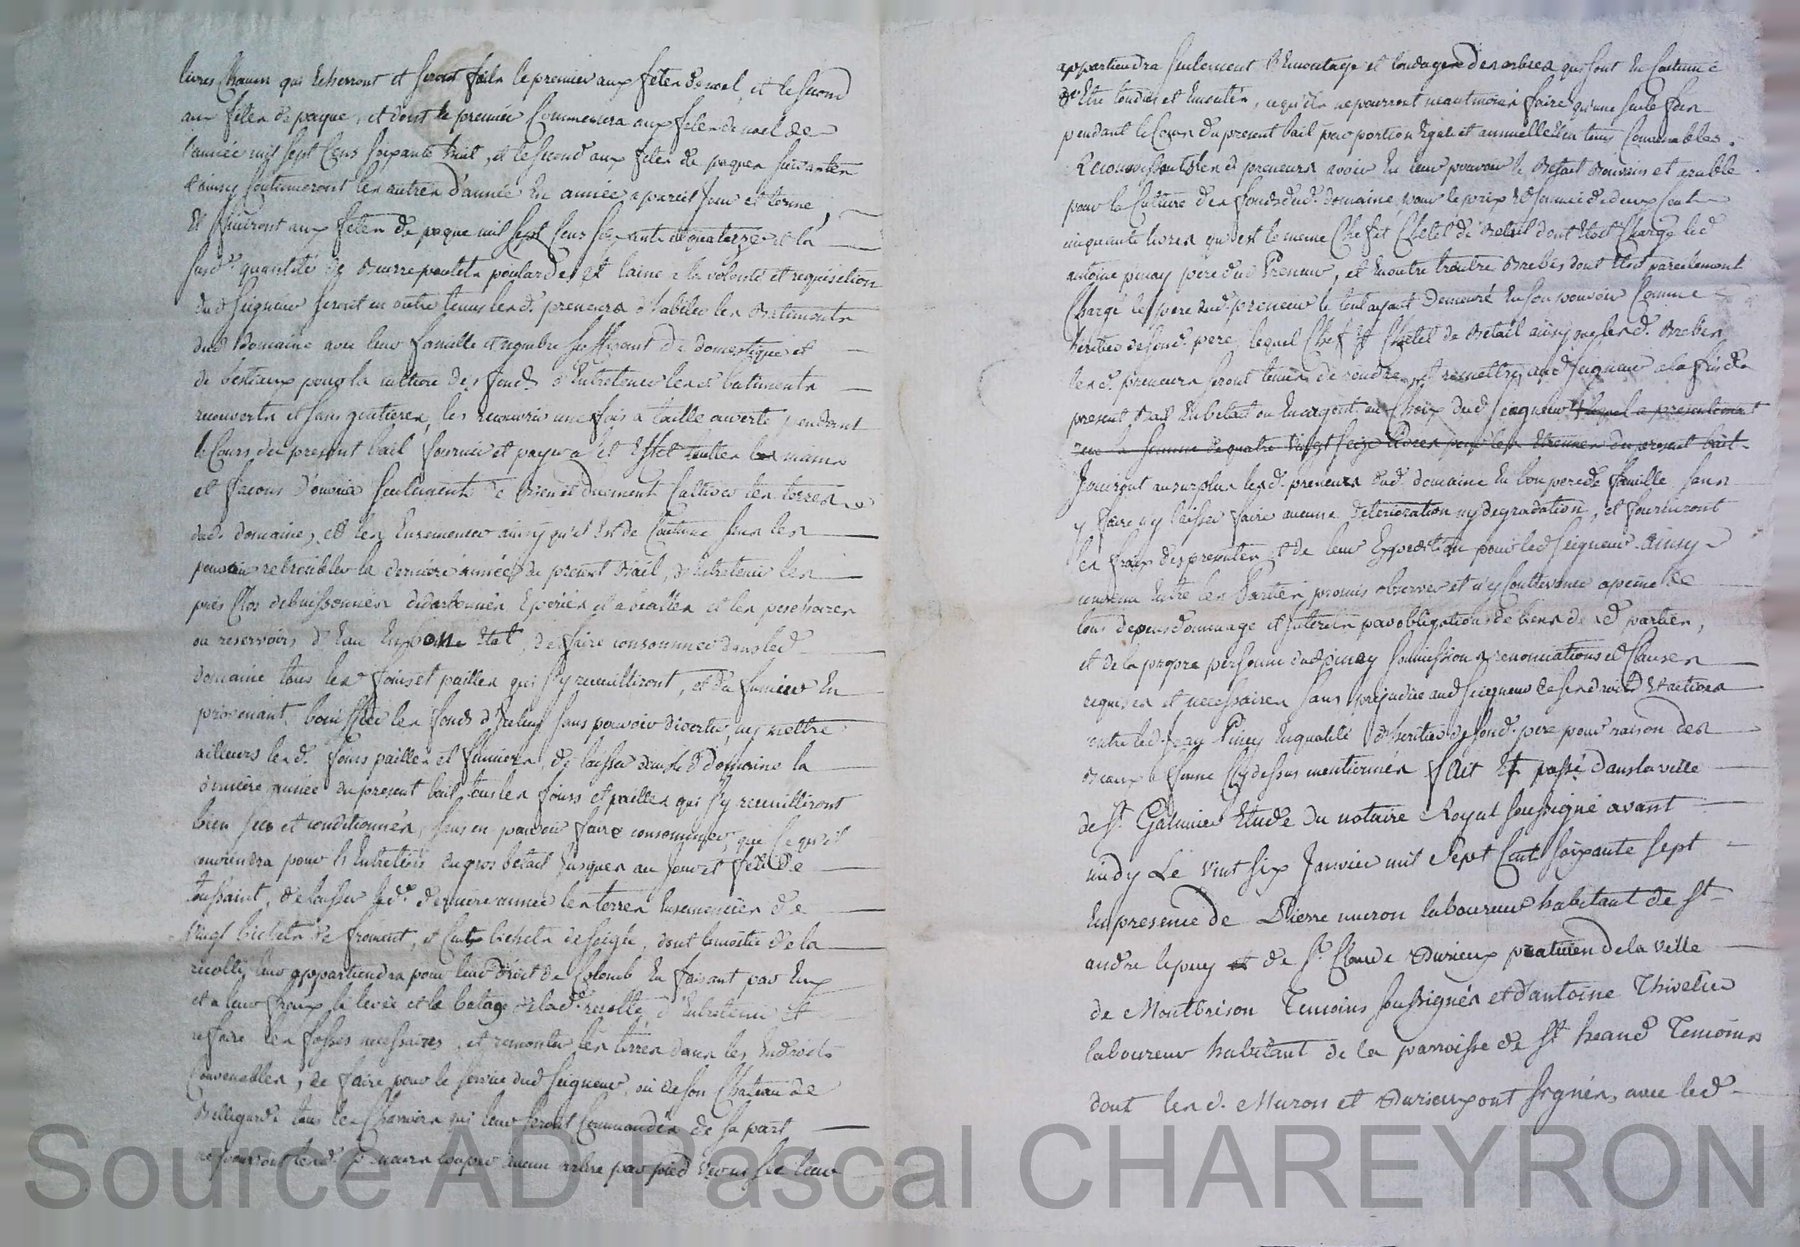 livres chacun qui escherront et seront faits le premier aux fêtes de noel, et le second
aux fêtes de paque, et dont le premier commencera aux fetes de noel de
l'année mil sept cens soixante huit, et le second aux fetes de paques suivantes
et ainsy continueront les autres d'année en année a pareil jour et terme,
et finiront aux fêtes de paque mil sept cens soixante quatorze et la
susd. quantité de beurre poulets poulardes et laine a la volonté et requisition
dud seigneur seront en outre tenus lesd. preneurs d'habiter les batiments
dud domaine avec leur famille et nombre suffisant de domestiques et
de bestiaux pour la culture des fonds d'entretenir lesd batiments
recouverts et sans goutieres, les recouvrir une fois a taille ouverte pendant
le cours du present bail fournir et payer a cet effet toutes les mains
et facons d'ouvrier seulement de bien et duement cultiver les terres
dud. domaine, et les ensemencer ainsy qu'il est de coutume sans les
pouvoir redoubler la derniere année du present bail, d'entretenir les
prés clos debuissonnés et les pescheries
ou reservoirs d'eau en bonne etat, de faire consommer dans led
domaine tous les foins et pailles qui s'y recueilliront, et du fumier en
provenant, bonifier les fonds d'iceluy sans pouvoir divertir, ny mettre
ailleurs lesd. foins pailles et fumiers, de laisser dans led domaine la
derniere année du present bail tous les foins et pailles qui s'y recueilliront
bien secs et conditionnés, sans en pouvoir faire consommer, que ce qu'il
conviendra pour l'entretien du gros betail jusques au jour et fête de
toussaint, de laisser lad. derniere année les terres ensemencées de
vingt bichets de froment, et cent bichets de seigle, dont la moitié de la
recolte leur appartiendra pour leur droit de colomb en faisant par eux
et a leur fraix la levée et le batage de lad. recolte d'entretenir et
refaire les fosses necessaires, et remonter les terres dans les endroits
convenables, de faire pour le service dud seigneur, ou de son chateau de
Bellegarde tous les charrois qui leur seront commandés de sa part
ne pourront lesd. preneurs couper aucun arbre par pied vif ou sec leur
appartiendra seulement l'emontage et tondage des arbres qui sont en coutume
d'etre tondus et emontés, ce qu'ils ne pourront neantmoins faire qu'une seule fois
pendant le cours du present bail par portion egale et annuelle en tems convenables.
Reconnoissants lesd preneurs avoir en leur pouvoir le betail bouvin et arable
pour la culture des fonds dud. domaine, pour le prix et somme de deux cent
cinquante livres qui est le meme chef et chetel de betail dont etoit chargé led
antoine pinay pere dud Preneur, et en outre trente brebis dont etoit pareillement
chargé led pere dud. preneur le tout ayant demeuré en son pouvoir comme
heritier de sond. pere, lequel chef et chetel de betail ainsy que lesd. brebis
lesd. preneurs seront tenus de rendre et remettre aud seigneur a la fin du
present bail en betail ou en argent au choix dud seigneur lequel a presentement
recu la somme de quatre vingt seize livres pour les etrennes du present bail
Jouiront au surplus lesd. preneurs dud. domaine en bon pere de famille sans
y faire ny laisser faire aucune deterioration ny degradation, et fourniront
les fraix des presentes et de leur expedition pour led seigneur. ainsy
convenu entre les Parties promis observer et n'y contrevenir a peine de
tous depens dommage et interets par obligation de biens desd parties,
et de la propre personne dud pinay soumissions renonciations et clauses
requises et necessaires sans prejudice aud seigneur de ses droits et actions
contre led. jean Pinay en qualité d'heritier de sond. pere pour raison des
beaux a ferme cy dessus mentionnés fait et passé dans la ville
de St. Galmier etude du notaire Royal soussigné avant
midy Le vint six Janvier mil Sept Cent soixante sept
en presence de Pierre muron laboureur habitant de St
andre lepuy et de Sr. Claude Durieux praticien de la ville
de Montbrison Temoins soussignés et d'antoine Thivelier
laboureur habitant de la parroisse de St heand Temoins
dont lesd. Muron et Durieux ont signés, avec led
Source AD Pascal CHAREYRON